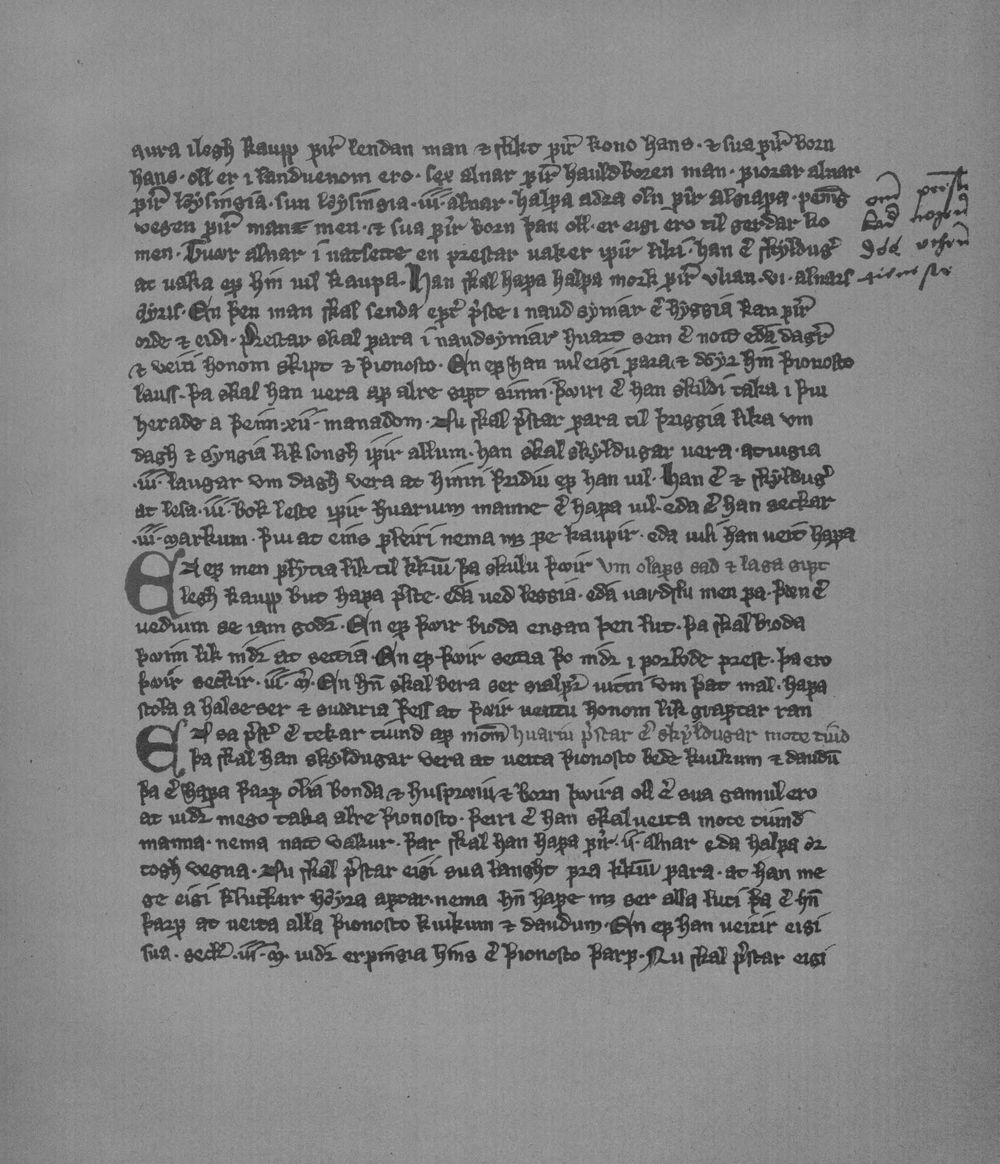 aura i legh kaupp ꝩirͥ lendan man ⁊ slikt ꝩirͥ kono hans · ⁊ sua ꝩirͥ born
hans · oll er i landuenom ero · sex alnar ꝩirͥ hauldboren man · ꝩiorar alnar
ꝩirͥ løysingia · sun løysingia · iii · alnar · halꝩa adra oln ꝩirͥ algiaꝩa ·
vegen ꝩirͥ men · ⁊ sua ꝩirͥ born þau oll · er eigi ero til gerdar ko
men · Tuær alnar i natsette en prestar vaker iꝩir liki · han er skyldugͬ
at vaka eꝩ hin uil kauꝩa · Han skal haꝩa halꝩa mork ꝩirͥ vlian · vi · alnars
øyris · En þen man skal senda eꝩtͬ pͬste i naudsymar er hyggia kan ꝩirͥ
orde ⁊ eidi · Prestar skal ꝩara i naudsymiar huart sem er nott eda dagͬ
⁊ veiti honom skiꝩt ⁊ þionosto · En eꝩ han uil eigi ꝩara · ⁊ døyr hin þionosto
lauss · þa skal han vera aꝩ alre siꝩt sinni · þæiri er han skildi taka i þui
herade a þeim · xii · manadom · Nu skal pͬstar ꝩara til þriggia lika vm
dagh ⁊ syngia liksongh iꝩir allum · han skal skyldugar vera · at uigia
· iii · laugar vm dagh vera at hinni þridiu eꝩ han uil · Han er ⁊ skyldugͬ
at lesa · iii · bok leste iꝩir huarium manne er haꝩa uil · eda er han seckar
· iii · markum · þui at eins ꝩ nema mͫ ꝩe kauꝩir · eda uili han veit haꝩa
EN eꝩ men ꝩlytia lik til kkiu þa skulu þæir vm olaꝩs sad ⁊ laga siꝩt
legh kaupp but haꝩa pͬste · eda ved leggia · eda men ꝩa · þeen er
vedium se iam godr · En eꝩ þæir bioda engan þen lut · þa skal bioda
þæim lik nidr at settia · En eꝩ þæir settia þo nidr i ꝩorbode prest · þa ero
þæir seckir · iii · m · En hn skal bera ser sialꝩr uitni vm þat mal · haꝩa
stola a halse ser ⁊ suæiria þess at þæir veittu honom lik graꝩtar ran
EN sa pͬstͬ er tekar tiund aꝩ mom huariu pstar er skyldugar mote tiund
þa skal han skyldugar vera at veita þionosto bede kuikum ⁊ daudum
þa er haꝩa þarꝩ olia bonda ⁊ husprøiu ⁊ born þæira oll er sua gamul ero
at uidr mego taka alre þionosto · þeiri er han skal veita mote tiund
manna · nema natt vakur · þar skal han haꝩa ꝩir · ii · alnar eda halꝩa ør
togh vegna · Nu skal pͬstar eigi sua langht ꝩra kkiu ꝩara · at han me
ge eigi kluckur høyra aꝩtar · nema hn haꝩe mͫ ser alla luti þa er hn
þarꝩ at veita alla þionosto kuikum ⁊ daudum · En eꝩ han veitir eigi
sua · seckr · iii · m · uidr erꝩingia hins er þionosto þarꝩ · Nu skal pͬstar eigi